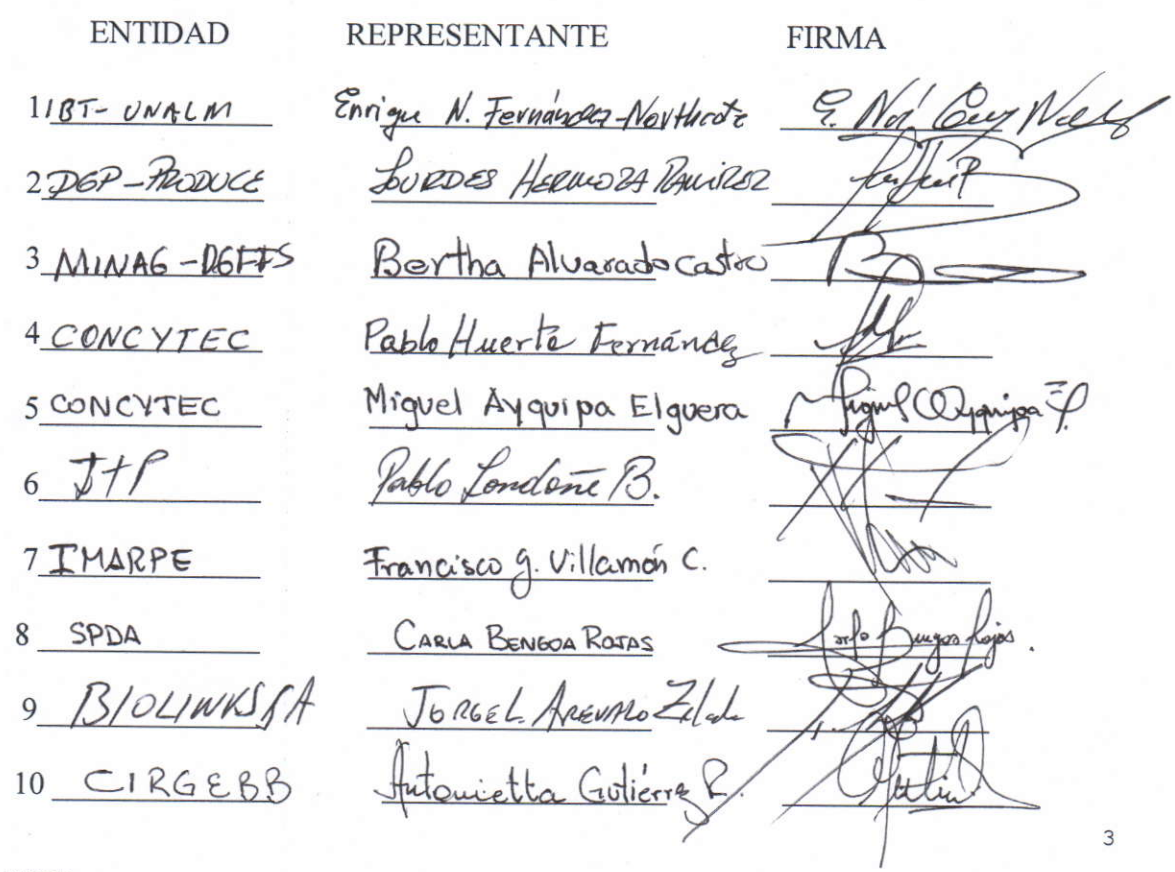 ENTIDAD REPRESENTANTE FIRMA
1 IBT-UNALM Enrique N. Fernández-Northcote
2 DGP-PRODUCE LOURDES HERMOZA RAMIREZ
3 MINAG-DGFFS Bertha Alvarado Castro
4 CONCYTEC Pablo Huerta Fernández
5 CONCYTEC Miguel Ayquipa Elguera Miguel Ayquipa E.
6 ITP Pablo Londoñe B.
7 IMARPE Francisco G. Villamón C.
8 SPDA CARLA BENGOA ROJAS
9 BIOLINKS SA JORGE L. AREVALO Zelada
10 CIRGEBB Antonietta Gutiérrez R.
3